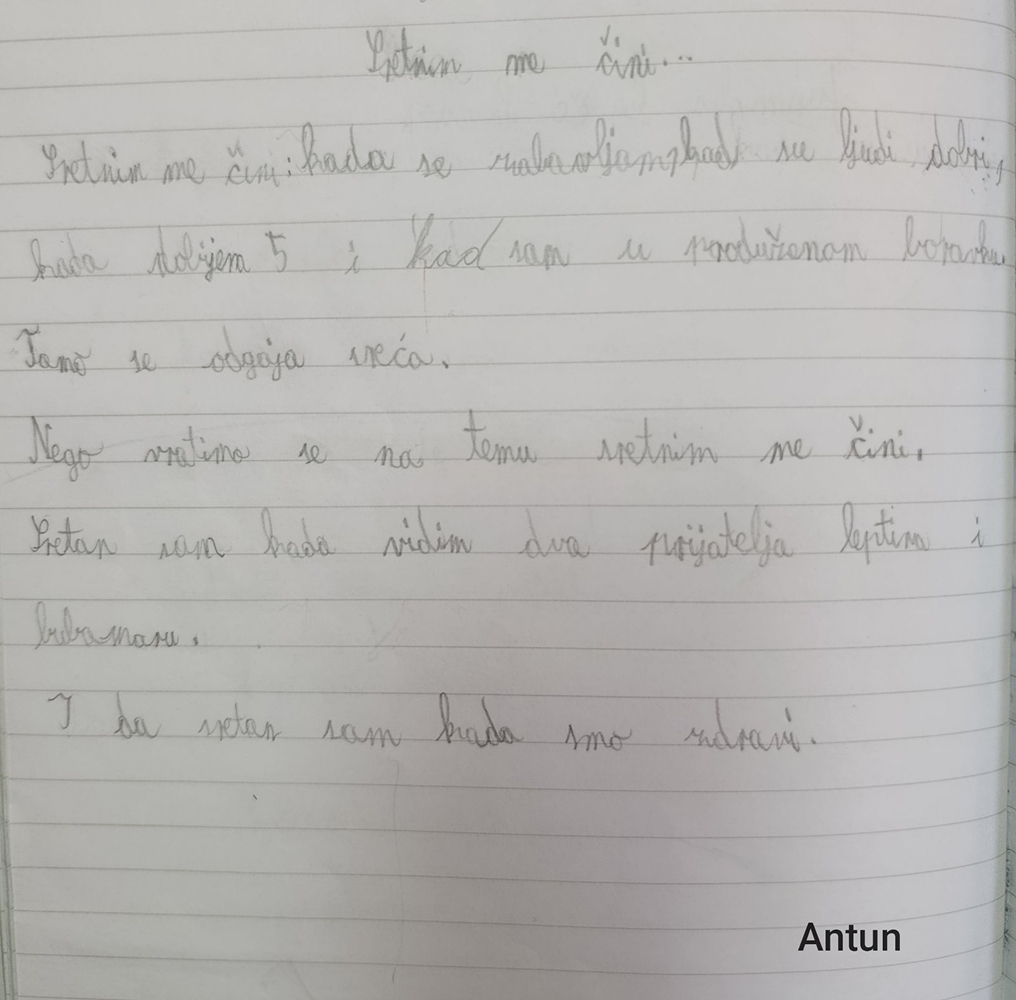 Sretnim me čini...
Sretnim me čini: kada se zabavljam, kad su ljudi dobri,
kada dobijem 5 i kad sam u produženom boravku.
Tamo se odgaja sreća.
Nego vratimo se na temu sretnim me čini.
Sretan sam kada vidim dva prijatelja leptira i
bubamaru.
I da sretan sam kada smo zdravi.
Antun